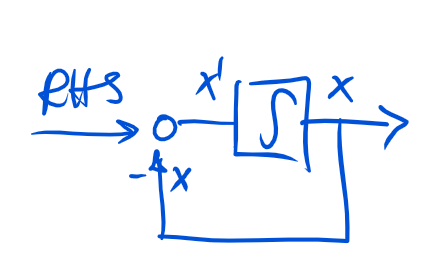 RHS
x' ∫ x
- x